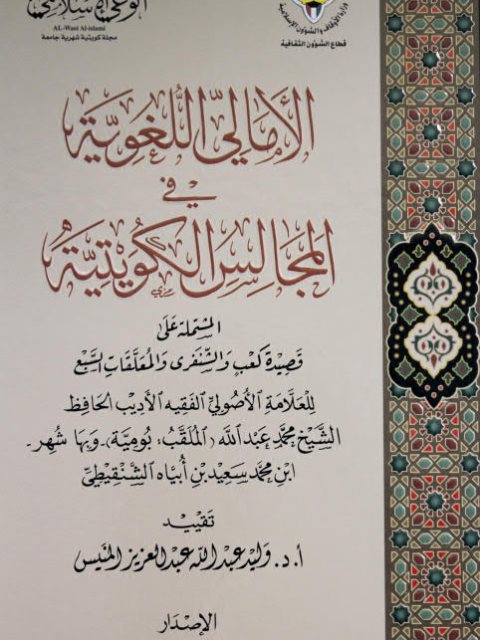 الوعي الإسلامي
AL-Waei Al-islami
مجلة كويتية شهرية جامعة
وزارة الأوقاف والشؤون الإسلامية
قطاع الشؤون الثقافية
الأَمَالِيّ اللُّغَوِيَّة
فِي
المَجَالِسِ الكُوَيْتِيَّة
المشتملة على
قصيدة كعب والشنفرى والمعلقات السبع
للعلامة الأصولي الفقيه الأديب الحافظ
الشيخ محمد عبد الله (الملقب: بومية) - وبها شهر -
ابن محمد سعيد بن أبياه الشنقيطي
تقييد
أ.د. وليد عبد الله عبد العزيز المنيس
الإصدار